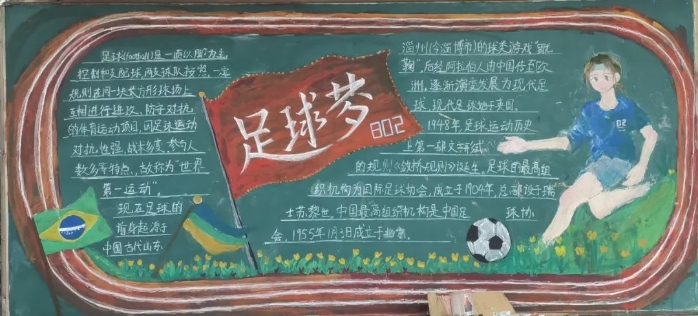 足球(football)是一项以脚为主
控制和支配球,两支球队按照一定
规则在同一块长方形球场上
互相进行进攻、防守对抗
的体育运动项目,因足球运动
对抗性强、战术多变、参与人
数多等特点,故称为“世界
第一运动”。
现在足球的
前身起源于
中国古代山东
足球梦
802
淄州(今淄博市)的球类游戏“蹴
鞠”,后经阿拉伯人由中国传至欧
洲,逐渐演变发展为现代足
球,现代足球始于英国。
1948年,足球运动历史
上第一部文
的规则《剑桥规则》诞生,足球的最高组
织机构为国际足球协会,成立于1904年,总部设于瑞
士苏黎世,中国最高组织机构是中国足
球协
会,1955年1月3日成立于北京。
02